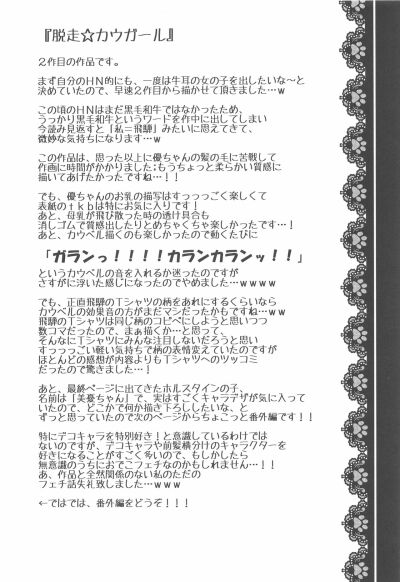 『脱走☆カウガール』
２作目の作品です。
まず自分のＨＮ的にも、一度は牛耳の女の子を出したいな〜と
決めていたので、早速２作目から描かせて頂きました…ｗ
この頃のＨＮはまだ黒毛和牛ではなかったため、
うっかり黒毛和牛というワードを作中に出してしまい
今読み見返すと「私＝飛騨」みたいに思えてきて、
微妙な気持ちになります…ｗ
この作品は、思った以上に優ちゃんの髪の毛に苦戦して
作画に時間がかかりました；もうちょっと柔らかい質感に
描いてあげたかったですね…！！
でも、優ちゃんのお乳の描写はすっっっごく楽しくて
表紙のｔｋｂは特にお気に入りです！
あと、母乳が飛び散った時の透け具合も
消しゴムで質感出したりとめちゃくちゃ楽しかったです…！
あと、カウベル描くのも楽しかったので動くたびに
「ガランっ！！！！カランカランッ！！」
というカウベルの音を入れるか迷ったのですが
さすがに浮いた感じになったのでやめました…ｗｗｗｗ
でも、正直飛騨のＴシャツの柄をあれにするくらいなら
カウベルの効果音の方がまだマシだったかもですね…ｗｗ
飛騨のＴシャツは同じ柄のコピペにしようと思いつつ
数コマだったので、まぁ描くか…と思って、
そんなにＴシャツにみんな注目しないだろうと思い
すっっっごい軽い気持ちで柄の表情変えていたのですが
ほとんどの感想が内容よりもＴシャツへのツッコミ
だったので驚きました…！
あと、最終ページに出てきたホルスタインの子、
名前は「美憂ちゃん」で、実はすごくキャラデザが気に入って
いたので、どこかで何か描き下ろししたいな、と
ずっと思っていたので次のページからちょこっと番外編です！！
特にデコキャラを特別好き！と意識しているわけでは
ないのですが、デコキャラや前髪横分けのキャラクターを
好きになることがすごく多いので、もしかしたら
無意識のうちにおでこフェチなのかもしれません…！！
あ、作品と全然関係のない私のただの
フェチ話失礼致しました…ｗｗｗ
←ではでは、番外編をどうぞ！！！